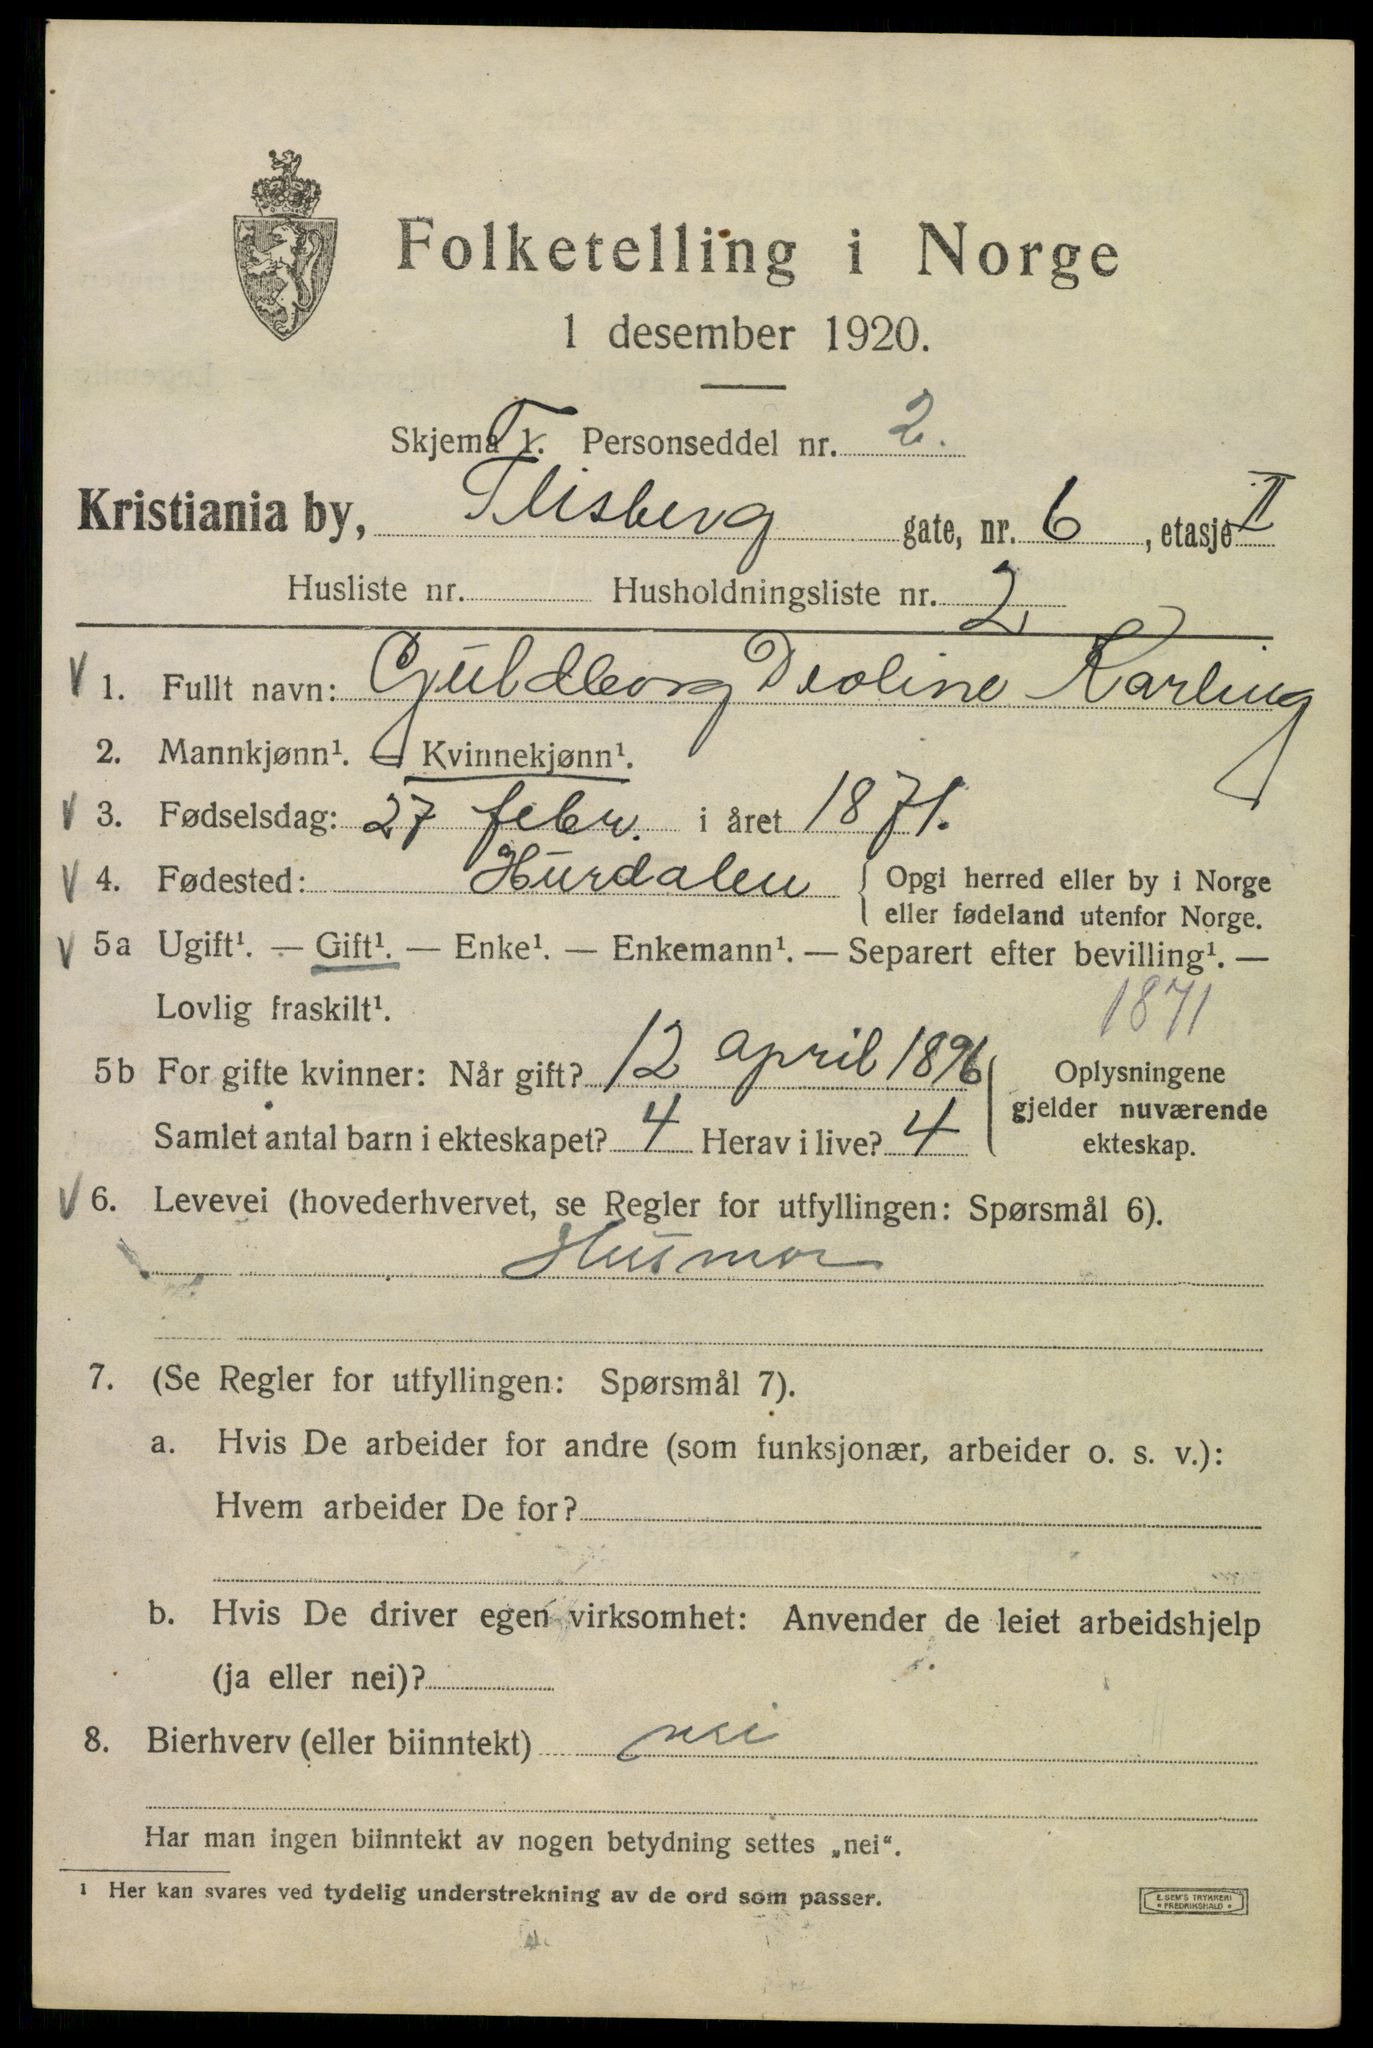 Folketelling i Norge
1 desember 1920.
Skjema 1. Personseddel nr. 2.
Kristiania by, Flisberg gate, nr. 6, etasje II
Husliste nr. Husholdningsliste nr. 2
V 1. Fullt navn: Guldborg Karling
2. Mannkjønn¹. — Kvinnekjønn¹.
V 3. Fødselsdag: 27 febr. i året 1871.
V 4. Fødested: Hurdalen { Opgi herred eller by i Norge
eller fødeland utenfor Norge.
V 5a Ugift¹. — Gift¹. — Enke¹. — Enkemann¹. — Separert efter bevilling¹. —
Lovlig fraskilt¹. 1871
5b For gifte kvinner: Når gift? 12 april 1896 Oplysningene
gjelder nuværende
Samlet antal barn i ekteskapet? 4 Herav i live? 4 ekteskap.
V 6. Levevei (hovederhvervet, se Regler for utfyllingen: Spørsmål 6).
Husmor
7. (Se Regler for utfyllingen: Spørsmål 7).
a. Hvis De arbeider for andre (som funksjonær, arbeider o. s. v.):
Hvem arbeider De for?
b. Hvis De driver egen virksomhet: Anvender de leiet arbeidshjelp
(ja eller nei)?
8. Bierhverv (eller biinntekt) nei
Har man ingen biinntekt av nogen betydning settes „nei“.
¹ Her kan svares ved tydelig understrekning av de ord som passer.
E. SEM'S TRYKKERI
* FREDRIKSHALD *